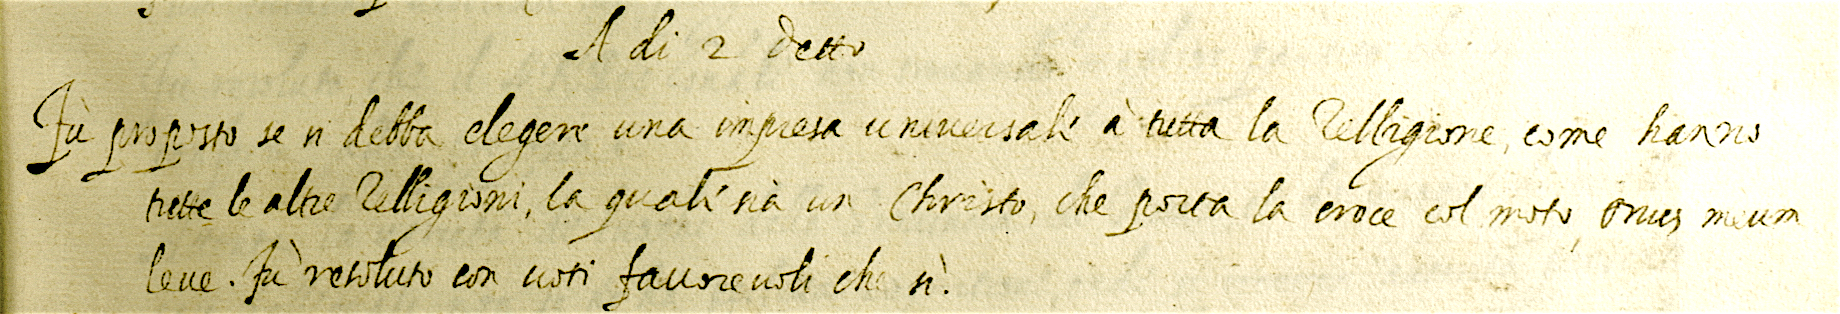 A di 2 detto
Fù proposto se si debba elegere una impresa universale à tutta la Relligione, come hanno
tutte le altre Relligioni, la quale sia un Christo, che porta la croce col moto, onus meum
leve. Fù resoluto con voti favorevoli che sì.